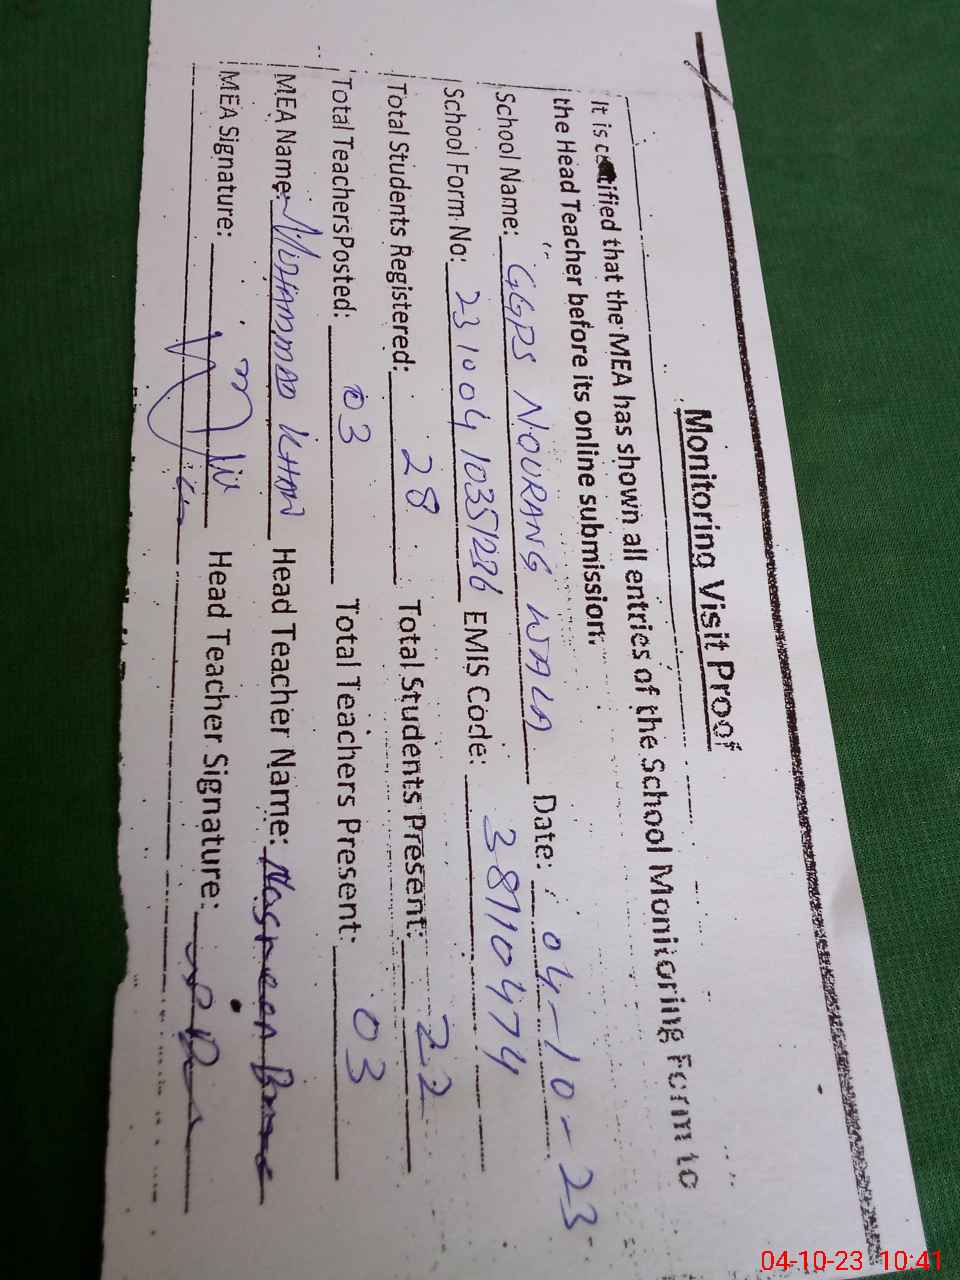 Monitoring Visit Proof
It is certified that the MEA has shown all entries of the School Monitoring Form to
the Head Teacher before its online submission.
School Name: GGPS NOURANG WALA Date: 04-10-23
School Form No: 231004 10351236 EMIS Code: 38110474
Total Students Registered: 28 Total Students Present: 22
Total TeachersPosted: 03 Total Teachers Present: 03
MEA Name: MOHAMMAD KHAN Head Teacher Name: Nasreen
MEA Signature: Head Teacher Signature:
04-10-23 10:41